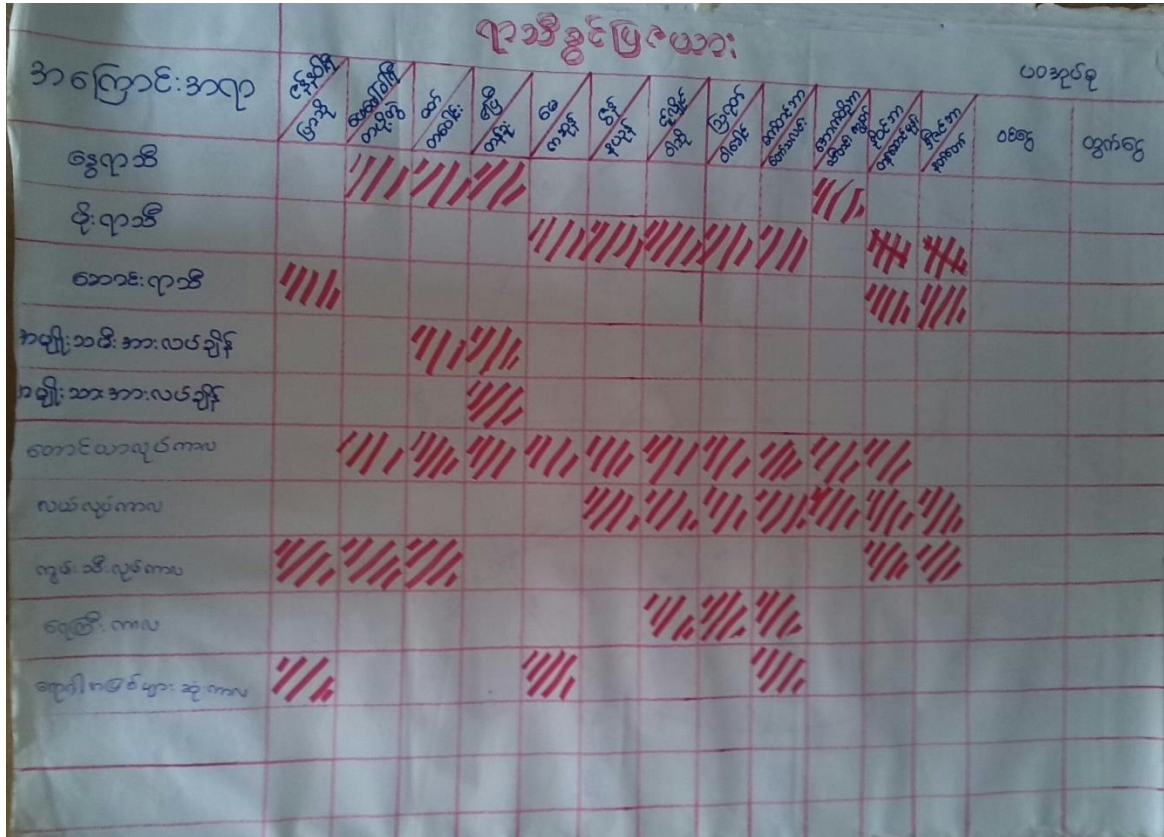 ရာသီခွင်ပြဇယား
အကြောင်းအရာ
ဇန်နဝါရီ
ပြာသို
ဖေဖော်ဝါရီ
တပို့တွဲ
မတ်
တပေါင်း
ဧပြီ
တန်ခူး
မေ
ကဆုန်
ဇွန်
နယုန်
ဇူလိုင်
ဝါဆို
ဩဂုတ်
ဝါခေါင်
စက်တင်ဘာ
တော်သလင်း
အောက်တိုဘာ
သီတင်းကျွတ်
နိုဝင်ဘာ
တန်ဆောင်မုန်း
ဒီဇင်ဘာ
နတ်တော်
ပဝအုပ်စု
ဝင်ငွေ
ထွက်ငွေ
နွေရာသီ
မိုးရာသီ
ဆောင်းရာသီ
အမျိုးသမီးအားလပ်ချိန်
အမျိုးသားအားလပ်ချိန်
တောင်ယာလုပ်ကာလ
လယ်လုပ်ကာလ
ကျွမ်းသီးလုပ်ကာလ
ရေကြီးကာလ
ရောဂါအဖြစ်များဆုံးကာလ